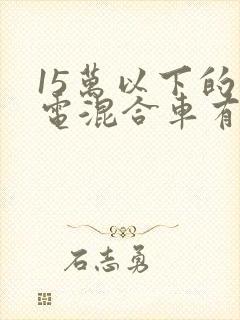 15萬以下的
電混合車有
石志勇